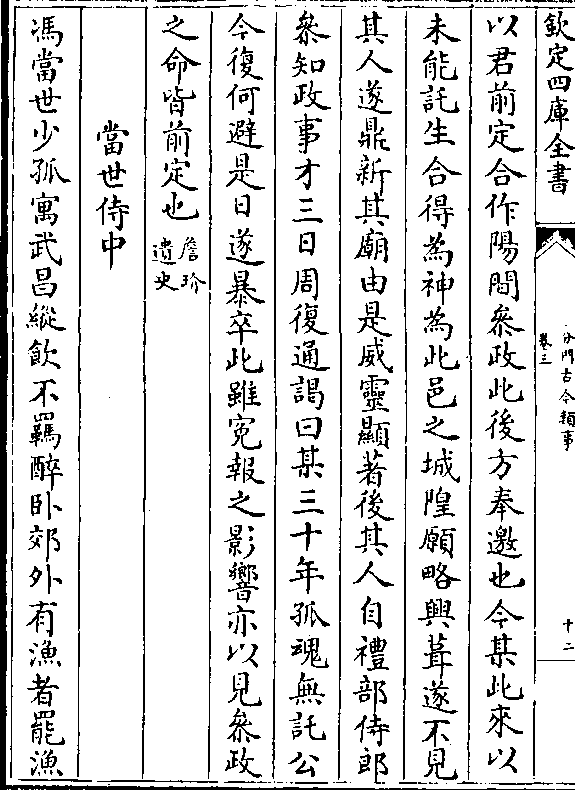 欽定四庫全書
分門古今類事
卷三
十二
以君前定合作陽間叅政此後方奉邀也今某此來以
未能託生合得為神為此邑之城隍願略興葺遂不見
其人遂鼎新其廟由是威靈顯著後其人自禮部侍郎
叅知政事才三日周復通謁曰某三十年孤魂無託公
今復何避是日遂暴卒此雖寃報之影響亦以見叅政
之命皆前定也詹玠
遺史
當世侍中
馮當世少孤寓武昌縱飲不羈醉卧郊外有漁者罷漁